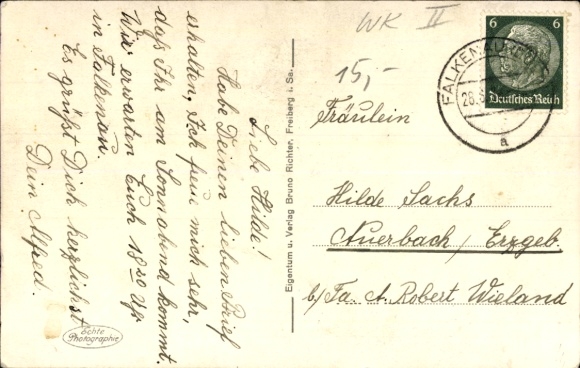 Liebe Hilde!
Habe Deinen lieben Brief
erhalten, Ich freu mich sehr,
das Ihr am Sonnabend kommt.
Wir erwarten Euch 18 20 Uhr
in Falkenau.
Es grüßt Dich herzlichst
Dein Alfred.
Echte
Photographie
Eigentum u. Verlag Bruno Richter, Freiberg i. Sa.
WK II
15,-
6 6
Deutsches Reich
FALKENAU
28.
a
Fräulein
Hilde Sachs
Auerbach / Erzgeb.
b/ Fa. A. Robert Wieland